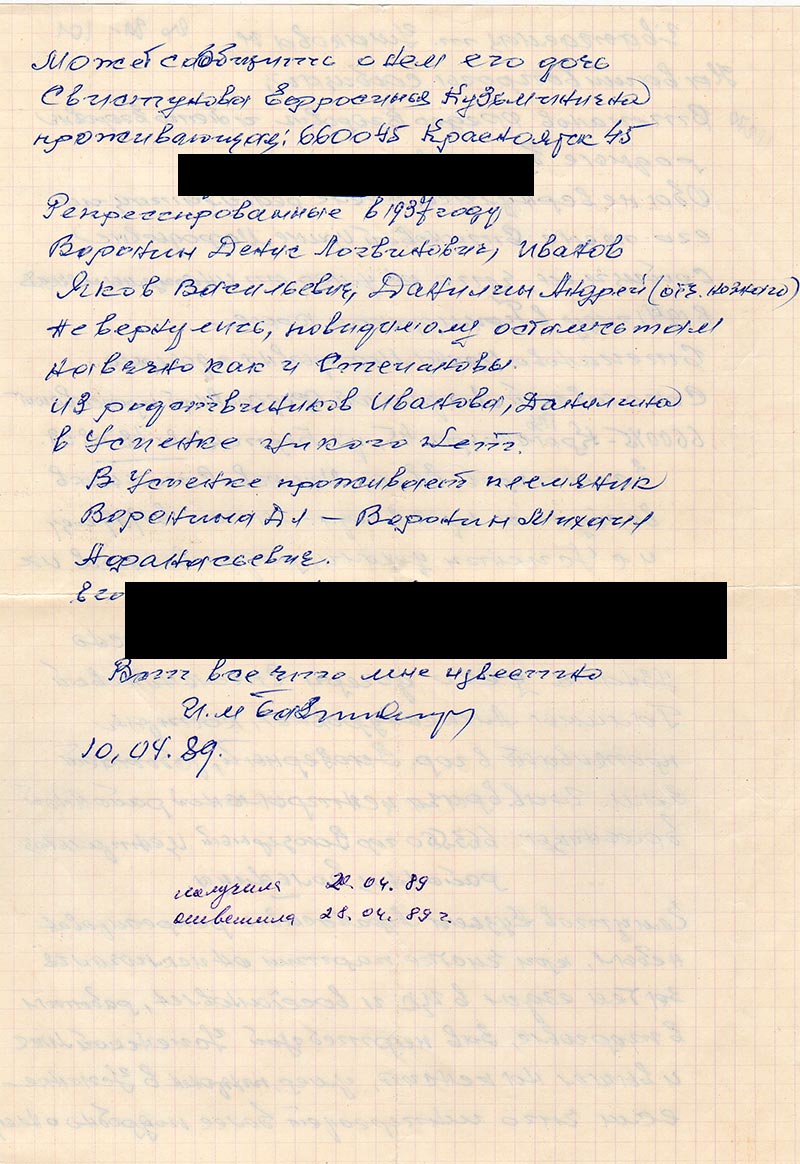 Может сообщить о нем его дочь
Свистунова Ефросинья Кузьминична
проживающая: 660045 Красноярск 45
Репрессированные в 1937 году
Воронин Денис Логвинович, Иванов
Яков Васильевич, Данилин Андрей (отч. не знаю)
не вернулись, повидимому остались там
навечно как и Степановы.
из родственников Иванова, Данилина
в Успенке никого нет.
В Успенке проживает племяник
Воронина Дл – Воронин Михаил
Афанасьевич.
Его
Вот все что мне известно
И.М
10,04.89.
получила 20.04.89
ответила 28.04.89 г.